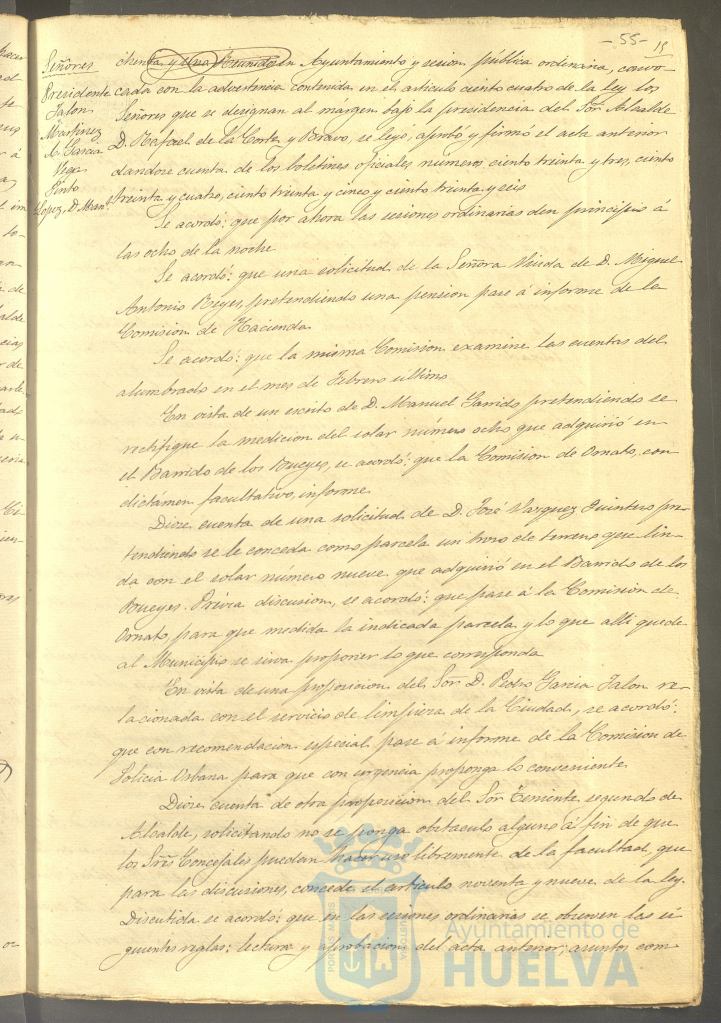 - 55 - 15
Señores
Presidente
Jalon
Martinez
A. Garcia
Vega
Pinto
Lopez, D. Man.l
chenta y una Reunidos en Ayuntamiento y sesion pública ordinaria, convo-
cada con la advertencia contenida en el artículo ciento cuatro de la ley los
Señores que se designan al márgen bajo la presidencia del Sor Alcalde
D. Rafael de la Corte y Bravo, se leyó, aprobó y firmó el acta anterior
dandose cuenta de los boletines oficiales números ciento treinta y tres, ciento
treinta y cuatro, ciento treinta y cinco y ciento treinta y seis
Se acordó: que por ahora las sesiones ordinarias den principio á
las ocho de la noche
Se acordó: que una solicitud de la Señora Viuda de D. Miguel
Antonio Reyes, pretendiendo una pension pase á informe de la
Comision de Hacienda
Se acordó: que la misma Comision examine las cuentas del
alumbrado en el mes de Febrero último
En vista de un escrito de D. Manuel Garrido pretendiendo se
rectifique la medicion del solar número ocho que adquirió en
el Barrido de los Bueyes, se acordó: que la Comision de Ornato, con
dictámen facultativo, informe
Diose cuenta de una solicitud de D. José Vazquez Quintero pre-
tendiendo se le conceda como parcela un trozo de terreno que lin-
da con el solar número nueve que adquirió en el Barrido de los
Bueyes. Prévia discusion, se acordó: que pase á la Comision de
Ornato, para que medida la indicada parcela y lo que allí quede
al Municipio se sirva proponer lo que corresponda
En vista de una proposicion del Sor D. Pedro Garcia Jalon re-
lacionada con el servicio de limpieza de la Ciudad, se acordó:
que con recomendacion especial pase á informe de la Comision de
Policia Urbana para que con urgencia proponga lo conveniente
Diose cuenta de otra proposicion del Sor Teniente segundo de
Alcalde, solicitando no se ponga obstaculo alguno á fin de que
los Sres Concejales puedan hacer uso libremente de la facultad que
para las discusiones, concede el artículo noventa y nueve de la ley.
Discutida se acordó: que en las sesiones ordinarias se observen las si-
guientes reglas: lectura y aprobacion del acta anterior; asuntos com-
Ayuntamiento de
HUELVA